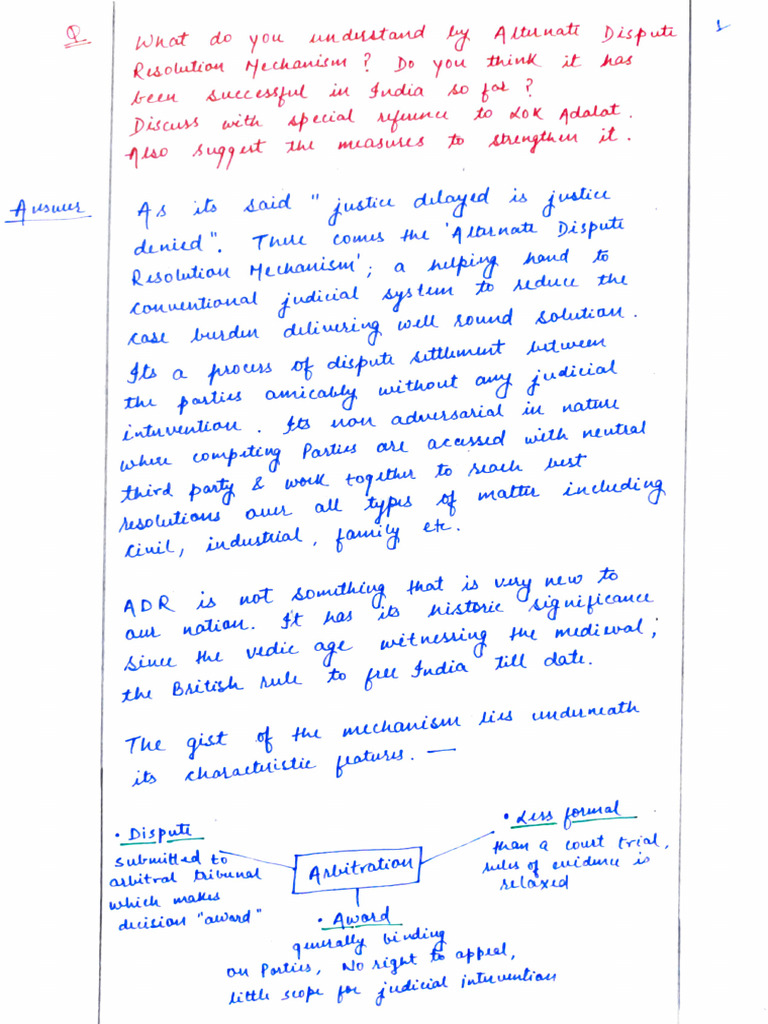 Q
1
What do you understand by Alternate Dispute
Resolution Mechanism? Do you think it has
been successful in India so far?
Discuss with special reference to LOK Adalat.
Also suggest the measures to strengthen it.
Answer
As its said "justice delayed is justice
denied". There comes the 'Alternate Dispute
Resolution Mechanism'; a helping hand to
conventional judicial system to reduce the
case burden delivering well sound solution.
Its a process of dispute settlement between
the parties amicably without any judicial
intervention. Its non adversarial in nature
where competing Parties are acessed with neutral
third party & work together to reach best
resolutions over all types of matter including
civil, industrial, family etc.
ADR is not something that is very new to
our nation. It has its historic significance
since the vedic age witnessing the medieval;
the British rule to free India till date.
The gist of the mechanism lies underneath
its characteristic features. —
• Dispute
submitted to
arbitral tribunal
which makes
decision "award"
Arbitration
• Less formal
than a court trial,
rules of evidence is
relaxed
• Award
generally binding
on Parties, No right to appeal,
little scope for judicial intervention